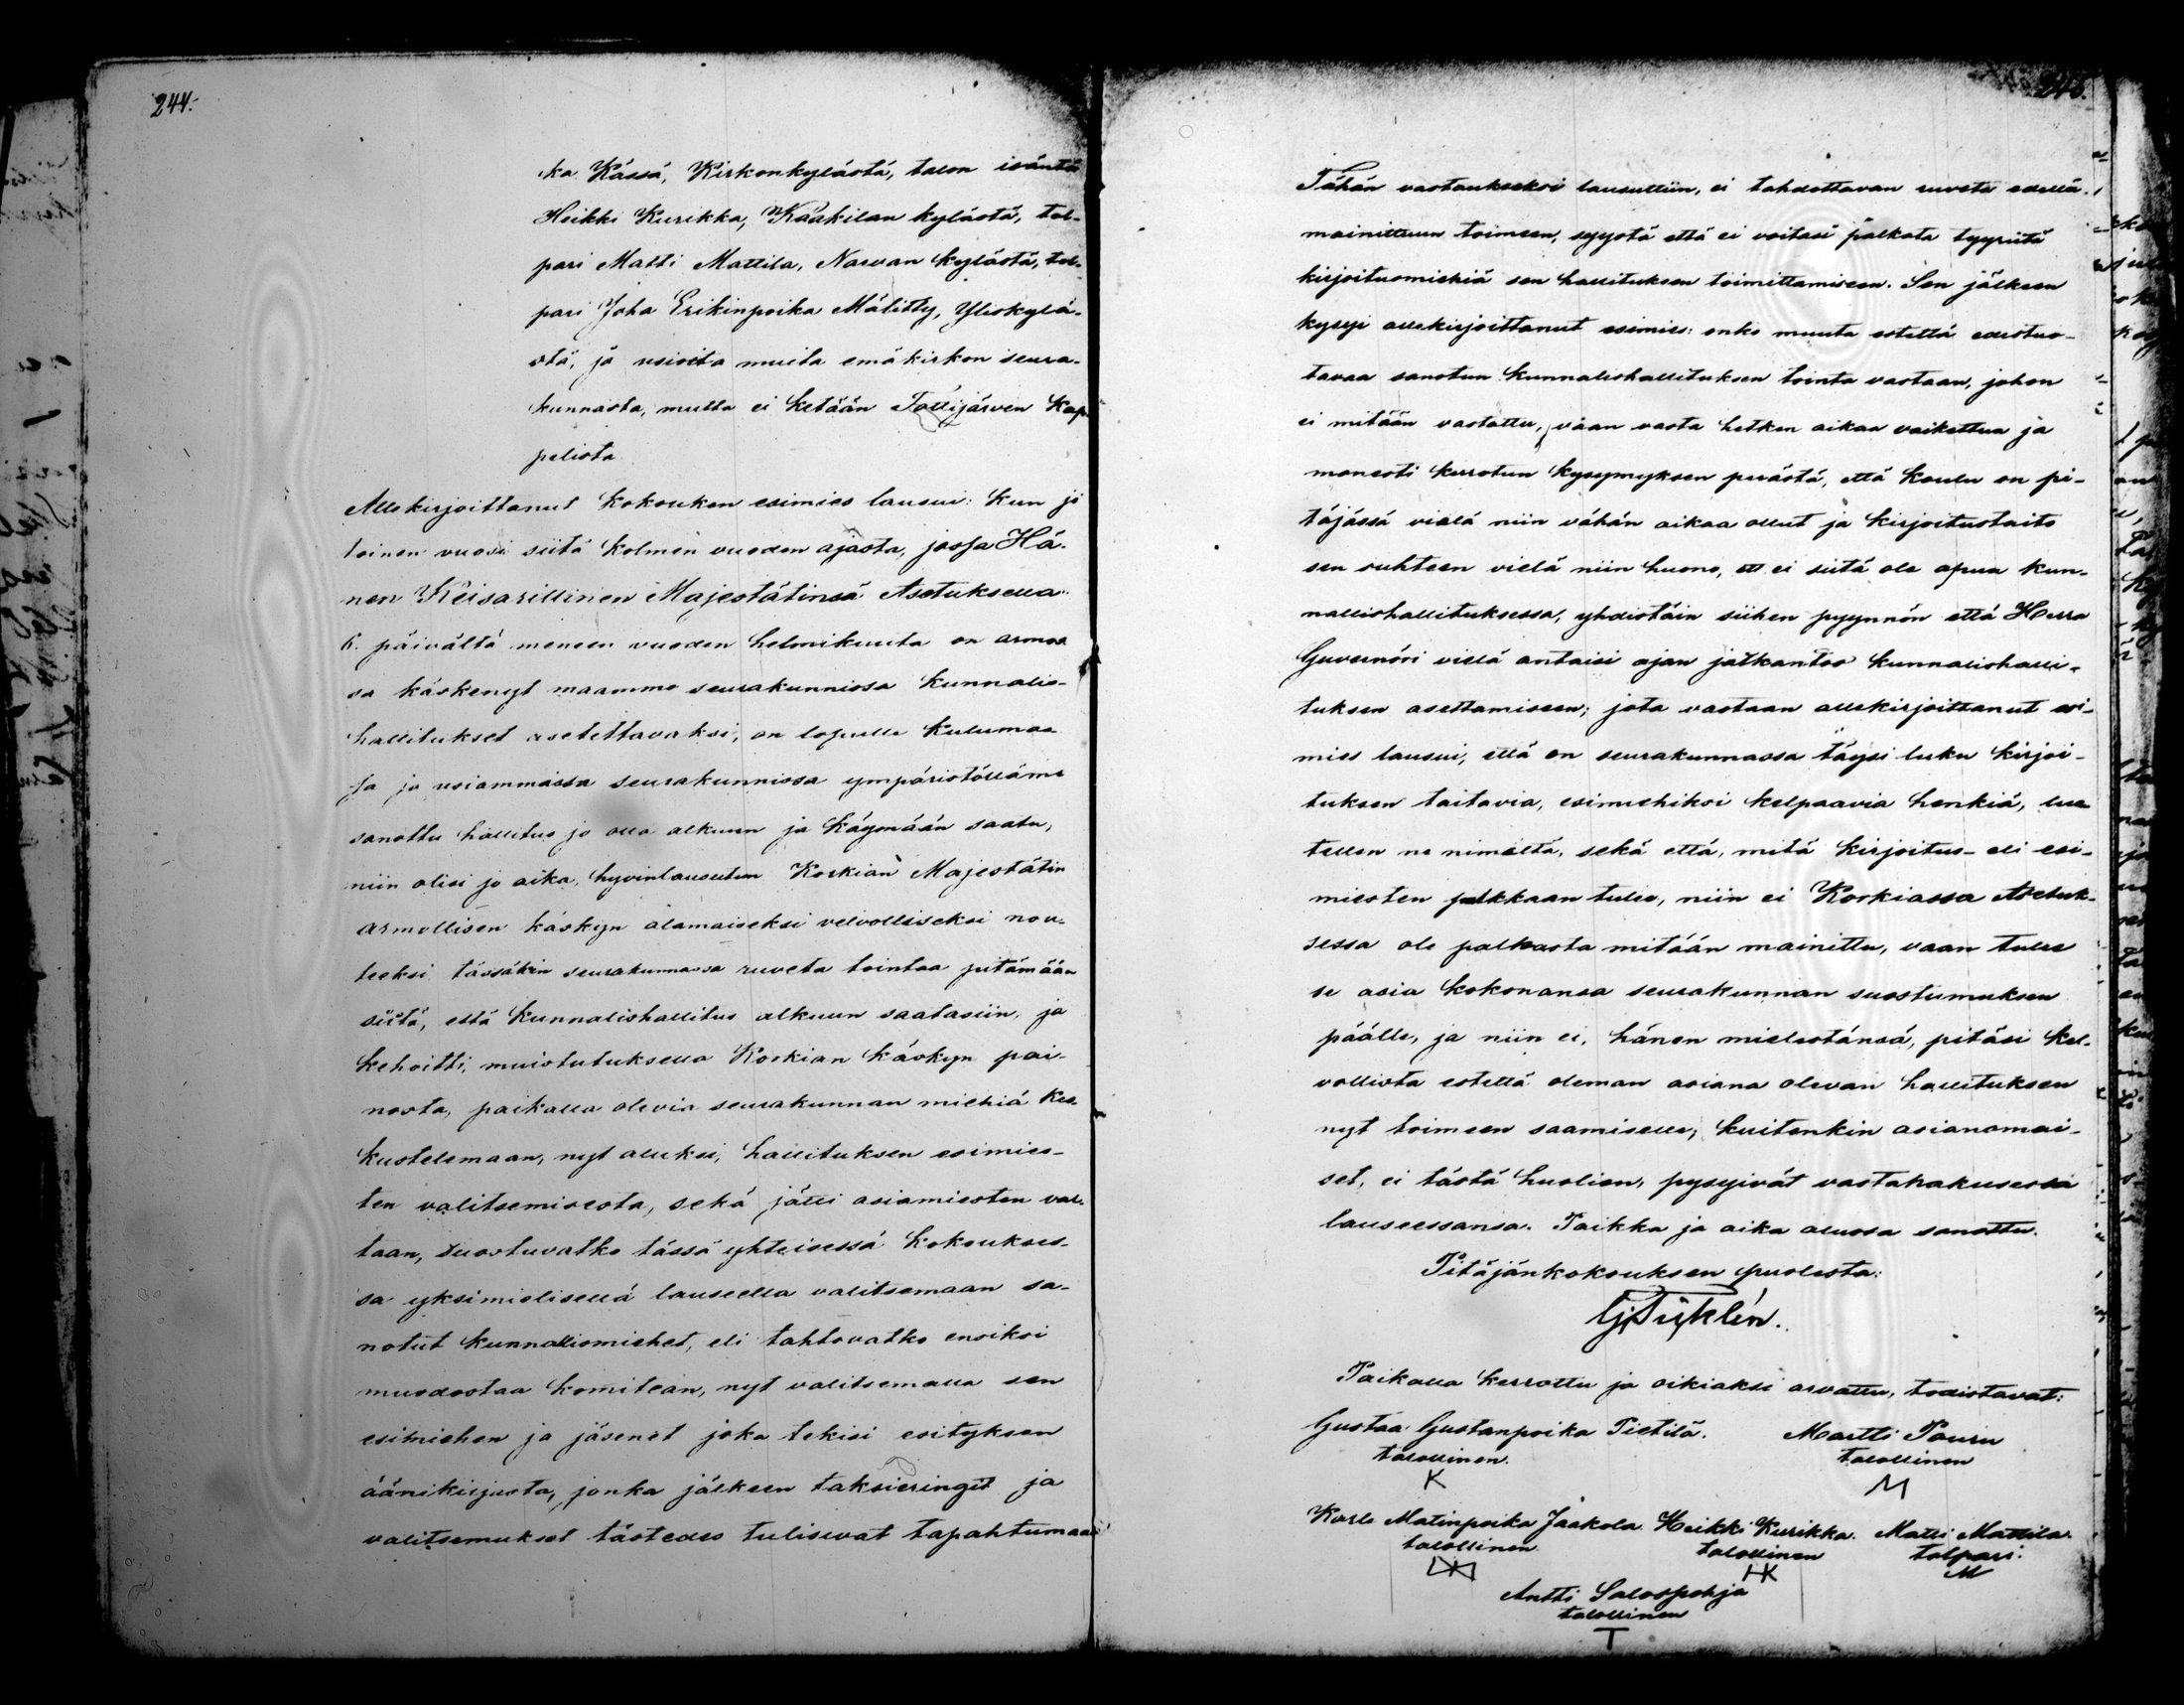 244.
ka Kässä, Kirkonkylästä, talon isäntä
Heikki Kurikka, Kaakilan kylästä, tol-
pari Matti Mattila, Narvan kylästä, tol-
pari Joha Erikinpoika Mälitty, Yliskylä-
stä, ja usioita muita emäkirkon seura-
kunnasta, mutta ei ketään Tottijärven Kap-
pelista
Allekirjoittanut Kokouksen esimies lausui: Kun jo
toinen vuosi siitä kolmen vuoden ajasta, jossa Hä-
nen Keisarillinen Majestätinsä Asetuksella
6. päivältä meneen vuoden helmikuuta on armos-
sa käskenyt maamme seurakunnissa kunnalis-
hallitukset asetettavaksi, on lopulle kulumas-
sa ja usiammassa seurakunnissa ympäristöllämme
sanottu hallitus jo olla alkuun ja käymään saatu,
niin olisi jo aika, hyvinlausutun Korkian Majestätin
armollisen käskyn alamaiseksi velvolliseksi nou-
teeksi tässäkin seurakunnassa ruveta tointaa pitämään
siitä, että Kunnalishallitus alkuun saatasiin, ja
kehoitti, muistutuksella Korkian käskyn pai-
nosta, paikalla olevia seurakunnan miehiä kes-
kustelemaan, nyt aluksi, hallituksen esimies-
ten valitsemisesta, sekä jätti asiamiesten var-
taan, suostuvatko tässä yhteisessä kokoukses-
sa yksimielisellä lauseella valitsemaan sa-
notut kunnallismiehet, eli tahtovatko ensiksi
muodostaa komitean, nyt valitsemalla sen
esimiehen ja jäsenet joka tekisi esityksen
äänikirjasta, jonka jälkeen taksieringit ja
valitsemukset tästedes tulisivat tapahtumaan
245.
Tähän vastaukseksi lausuttiin, ei tahdottavan ruveta edellä-
mainittuun toimeen, syystä että ei voitasi palkata tyyriitä
kirjoitusmiehiä sen hallituksen toimittamiseen. Sen jälkeen
kysyi allekirjoittanut esimies: onko muuta estettä edestuo-
tavaa sanotun kunnalishallituksen tointa vastaan, johon
ei mitään vastattu, vaan vasta hetken aikaa vaikettua ja
monesti kerrotun kysymyksen perästä, että koulu on pi-
täjässä vielä niin vähän aikaa ollut ja kirjoitustaito
sen suhteen vielä niin huono, ett ei siitä ole apua kun-
nallishallituksessa, yhdistäin siihen pyynnön että Herra
Guvernöri vielä antaisi ajan jatkantoo kunnalishalli-
tuksen asettamiseen; jota vastaan allekirjoittanut esi-
mies lausui, että on seurakunnassa täysi luku kirjoi-
tuksen taitavia, esimiehiksi kelpaavia henkiä, lue-
tellen ne nimeltä, sekä että, mitä kirjoitus- eli esi-
miesten palkkaan tulee, niin ei Korkiassa Asetuk-
sessa ole palkasta mitään mainittu, vaan tulee
se asia kokonansa seurakunnan suostumuksen
päälle, ja niin ei, hänen mielestänsä, pitäsi kel-
vollista estettä oleman asiana olevan hallituksen
nyt toimeen saamiselle; kuitenkin asianomai-
set, ei tästä huolien, pysyivät vastahakusessa
lauseessansa. Paikka ja aika alussa sanottu.
Pitäjänkokouksen puolesta:
Paikalla kerrottu ja oikiaksi arvattu, todistavat:
Gustaa Gustanpoika Pietilä. Martti Pauru
talollinen. talollinen
K M
Karle Matinpoika Jaakola Heikki Kurikka. Matti Mattila.
talollinen talollinen tolpari.
HK M
Antti Salospohja
talollinen
T